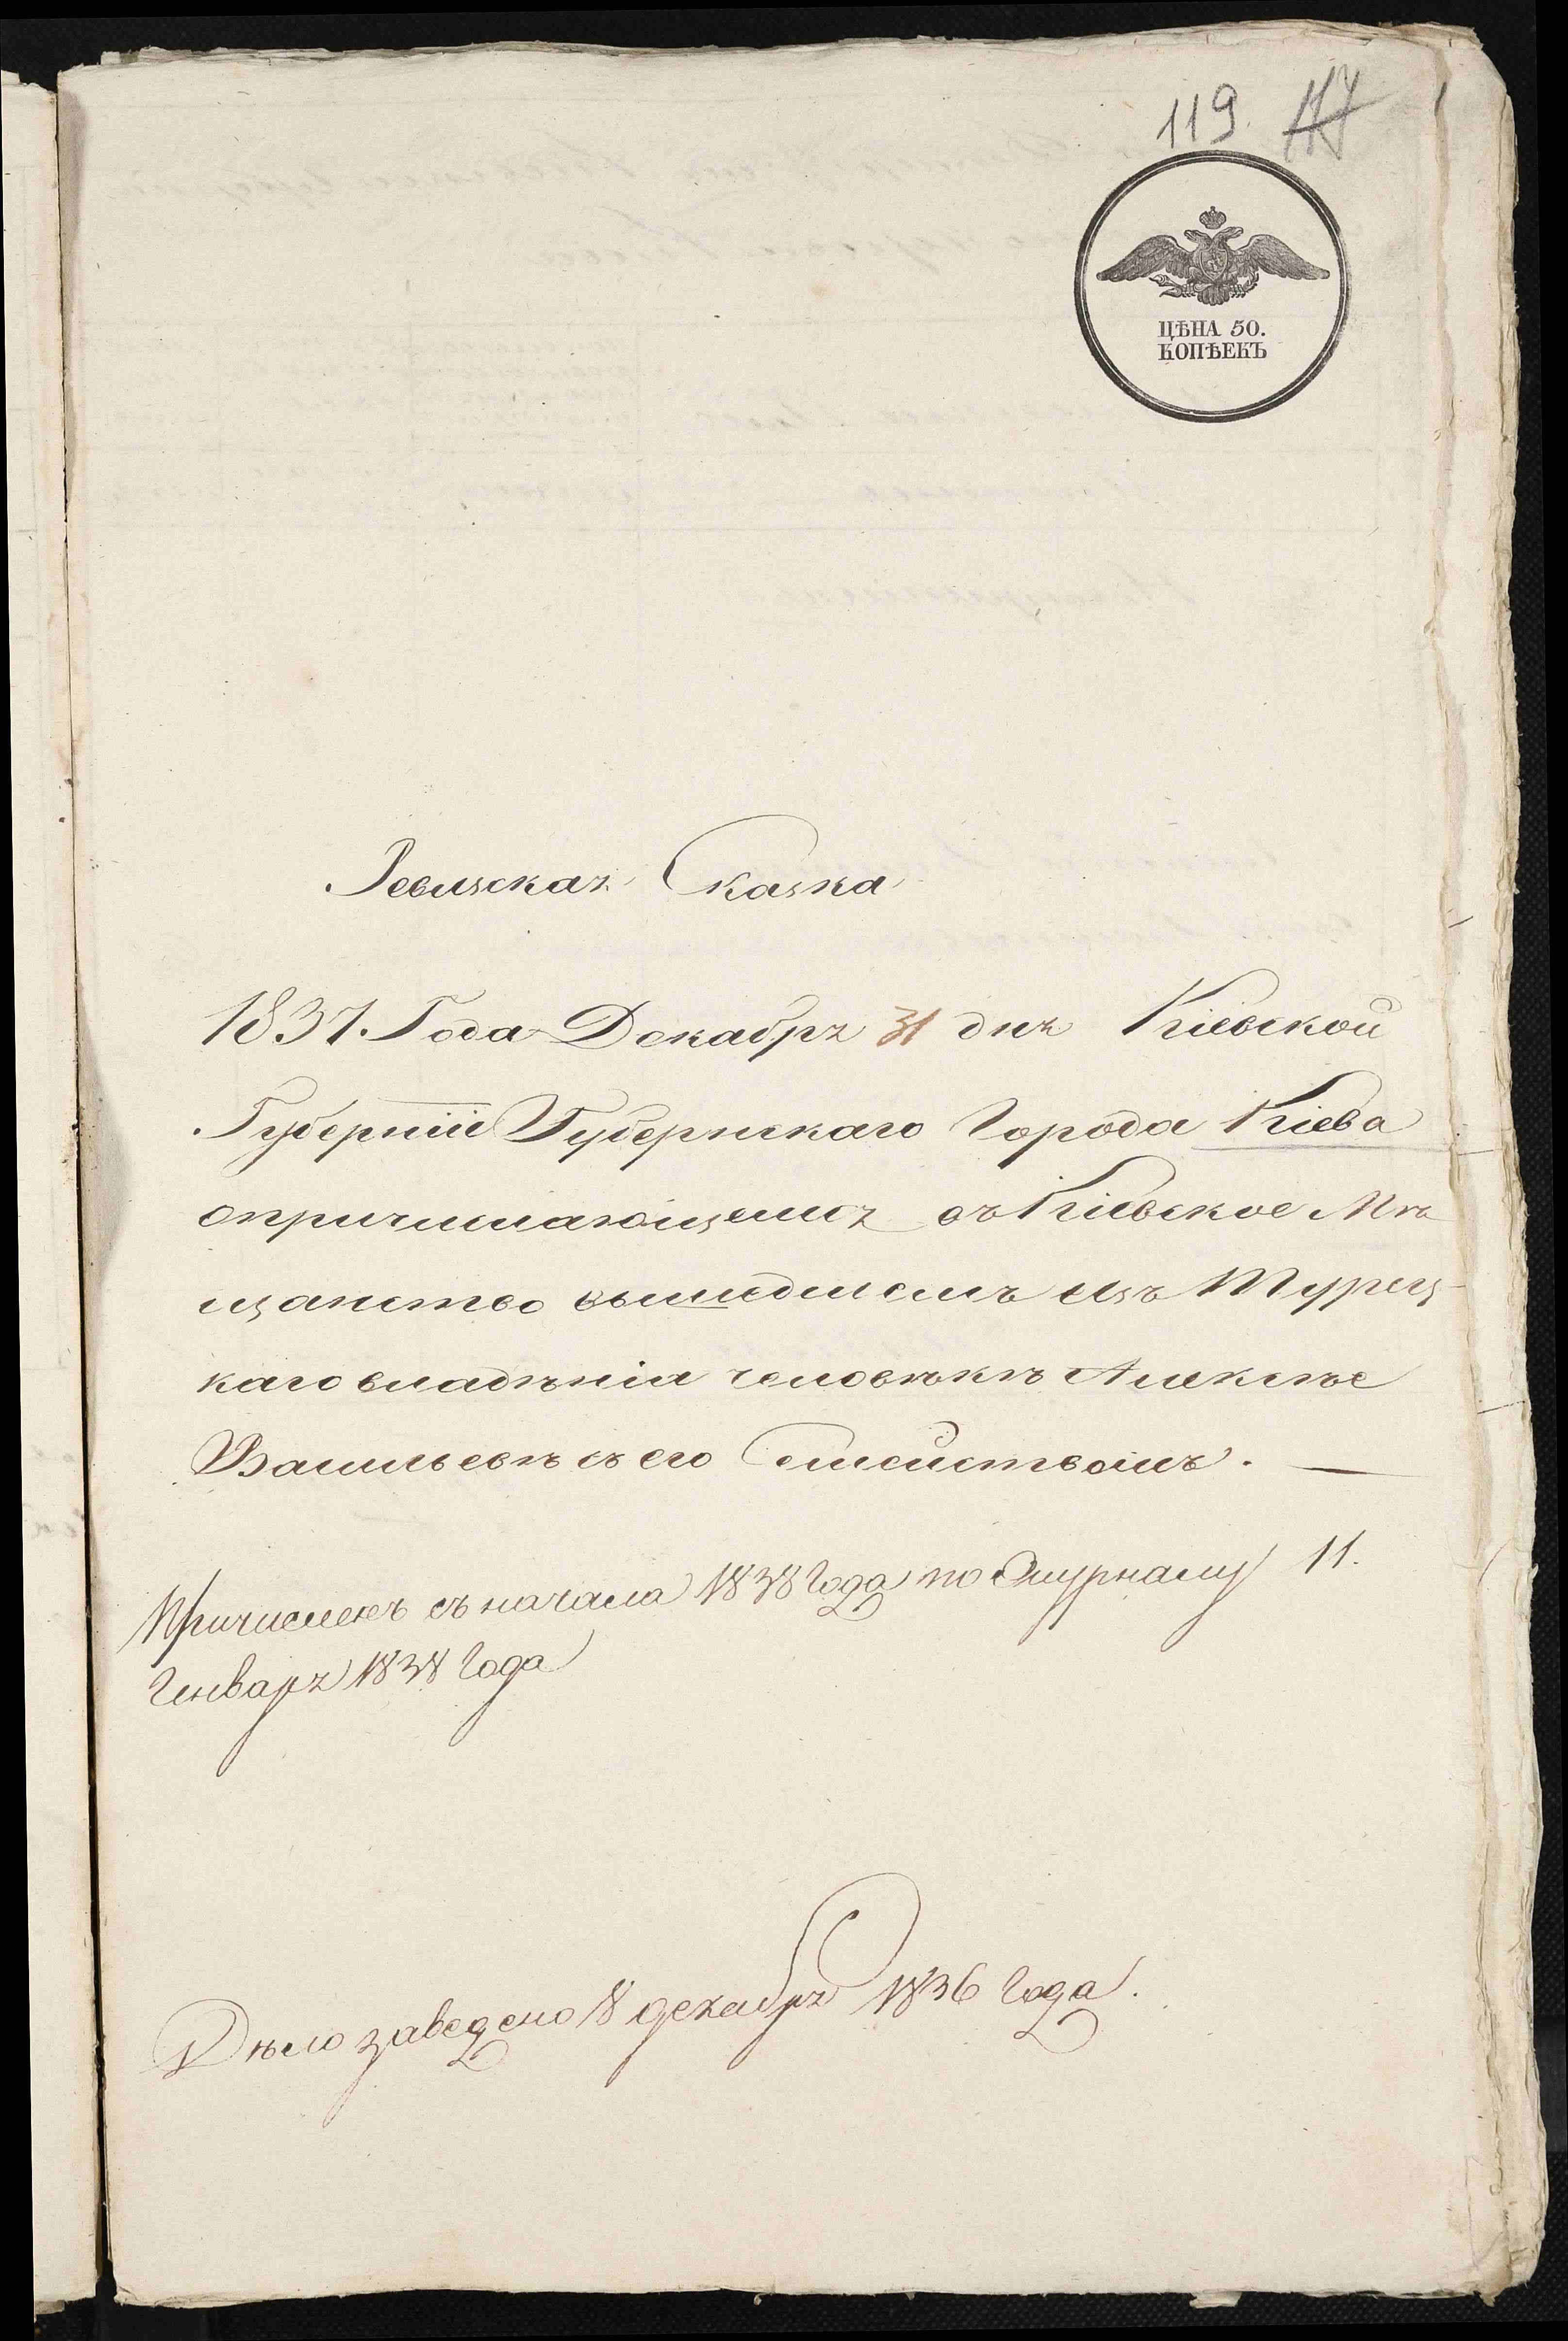 119. 117
ЦѢНА 50.
КОПѢЕКЪ
Ревизская Сказка
1837. Года Декабря 31 дня Кіевской
Губерніи Губернскаго Города Кіева
опричисляющемся въ Кіевское Мѣ
щанство вышедшемъ изъ Турец-
каго владѣнія человѣкѣ Алексѣе
Васильевѣ съ его Семействомъ. —
Причисленъ съ начала 1838 Года по Журналу 11.
Генваря 1838 Года
Дѣло заведено 8 декабря 1836 Года.